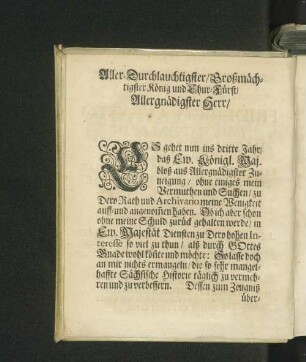 Aller-Durchlauchtigster/Großmäch-
tigster König und Chur-Fürst/
Allergnädigster Herr/
ES gehet nun ins dritte Jahr/
daß Ew. Königl. Maj.
bloß aus Allergnädigster Zu-
neigung / ohne einiges mein
Vermuthen und Suchen / zu
Dero Rath und Archivario meine Wenigkeit
auff- und angenommen haben. Ob ich aber schon
ohne meine Schuld zurück gehalten werde / in
Ew. Majestät Diensten zu Dero hohen In-
teresse so viel zu thun / alß durch GOttes
Gnade wohl könte und möchte: So lasse doch
an mir nichts ermangeln / die so sehr mangel-
haffte Sächsische Historie täglich zu vermeh-
ren und zu verbessern. Dessen zum Zeugniß
über-